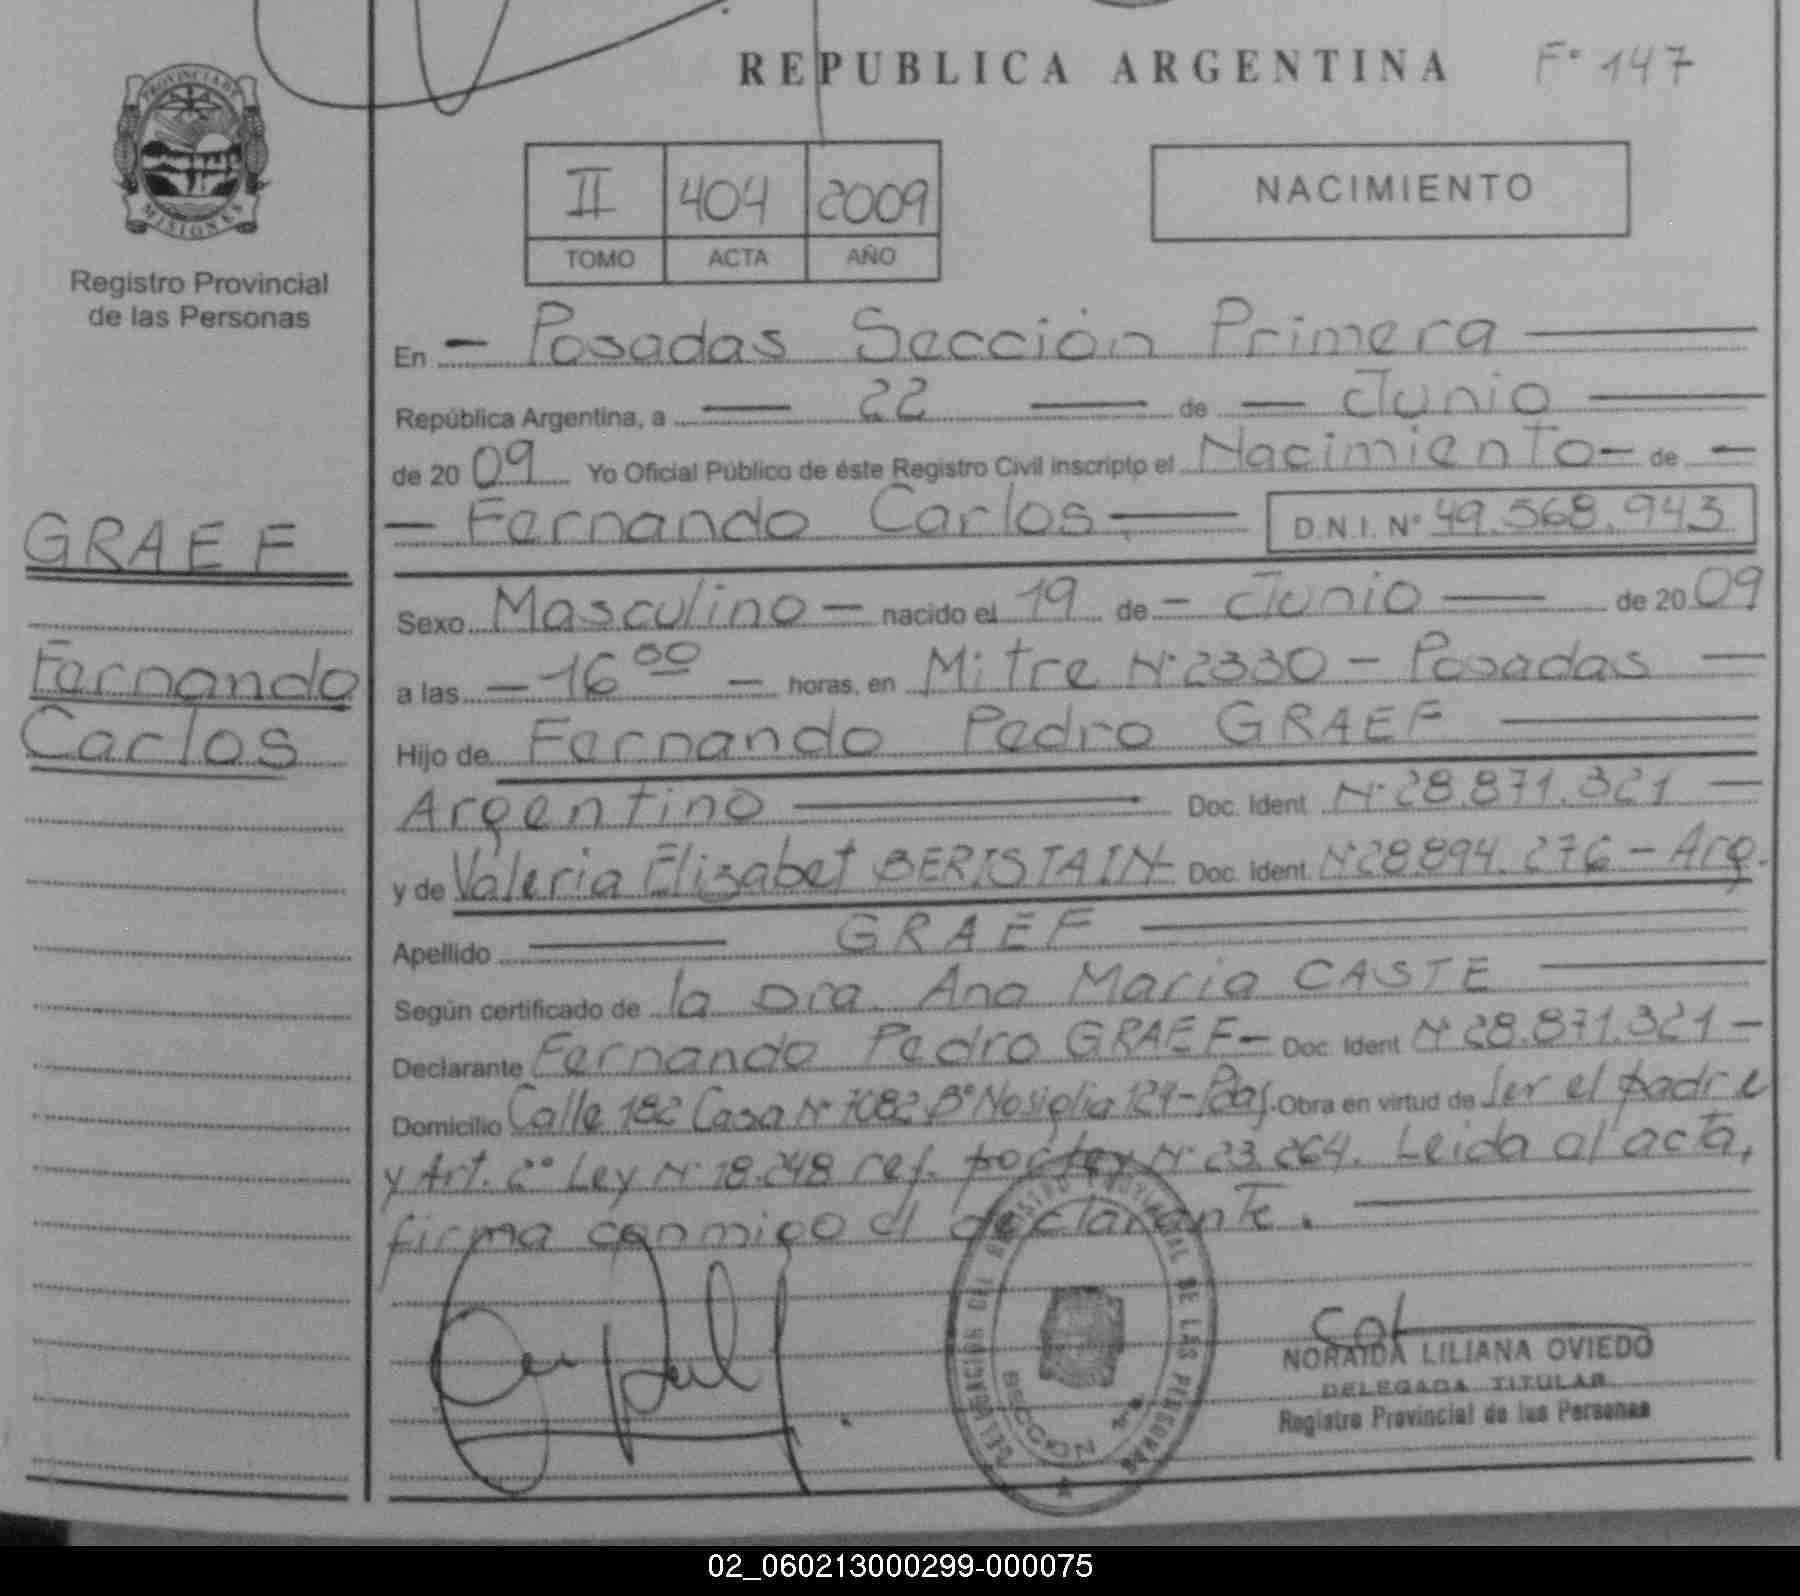 REPUBLICA ARGENTINA F° 147
PROVINCIA DE
MISIONES
Registro Provincial
de las Personas
II 404 2009
TOMO ACTA AÑO
NACIMIENTO
En - Posadas Sección Primera
República Argentina, a 22 de - Junio
de 20 09 Yo Oficial Público de éste Registro Civil inscripto el Nacimiento - de -
GRAEF
Fernando
Carlos
- Fernando Carlos - D.N.I. N° 49.568.943
Sexo Masculino - nacido el 19 de - Junio de 20 09
a las - 16 00 - horas, en Mitre N° 2330 - Posadas
Hijo de Fernando Pedro GRAEF
Argentino Doc. Ident N° 28.871.321
y de Valeria Elizabet BERISTAIN - Doc. Ident. N° 28.894.276 - Arg.
Apellido GRAEF
Según certificado de la Dra. Ana Maria CASTE
Declarante Fernando Pedro GRAEF - Doc. Ident N° 28.871.321 -
Domicilio Calle 182 Casa N° 7082 B° Nosiglia 121 - Pdas. Obra en virtud de ser el padre
y Art. 2° Ley N° 18.248 ref. por ley N° 23.264. Leida al acta,
firma conmigo el declarante.
DELEGACION DEL REGISTRO PROVINCIAL DE LAS PERSONAS
SECCION 1ra
NORAIDA LILIANA OVIEDO
DELEGADA TITULAR
Registro Provincial de las Personas
02_060213000299-000075